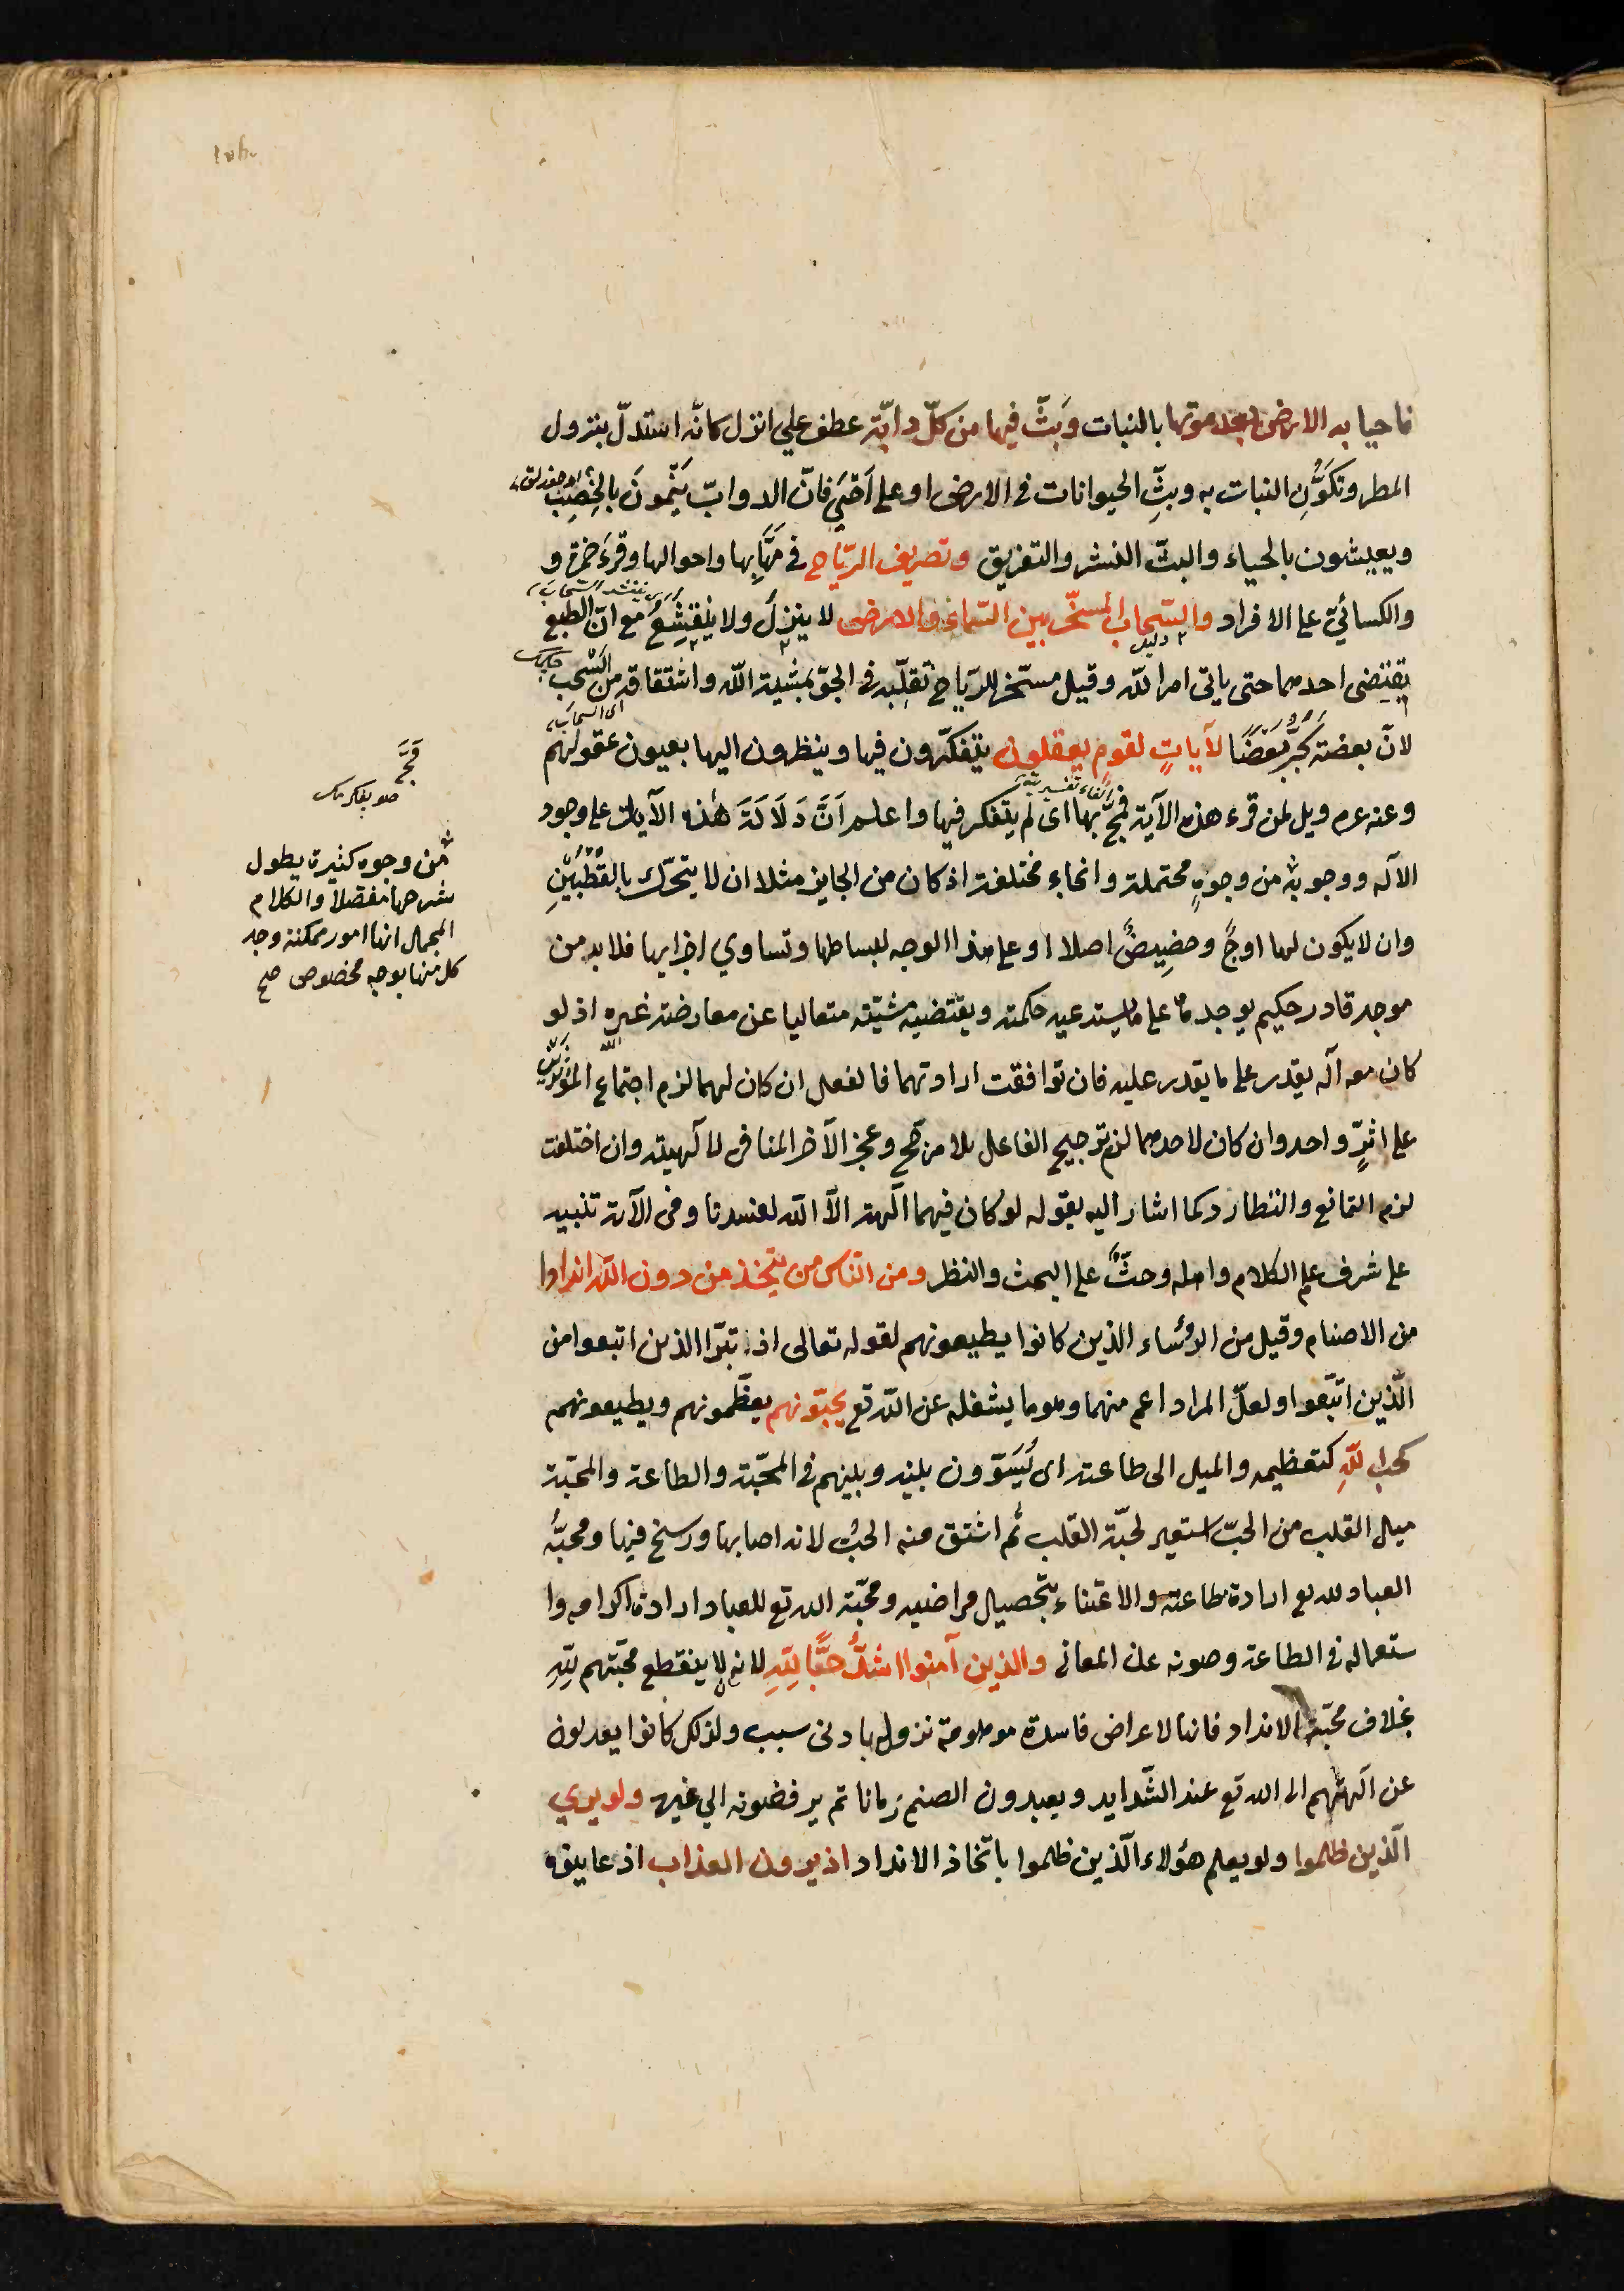 فاحيا به الارض بعد موتها بالنبات وَبَثَّ فيها من كلّ دابّة عطف علي انزل كانّه استدلّ بنزول
المطر وتكوُّنِ النبات به وبثِّ الحيوانات في الارض او على اَحْيَى فانّ الدوابّ يَنْمُونَ بالخِصِبِ
ويعيشون بالحياء والبثّ النشر والتفريق وتصريف الرّياح في مَهَابِّها واحوالها وقرءَ حمزة و
والكسائيّ على الافراد والسّحاب المسخّر بين السّماء والارض لا ينزلُ ولا ينقشِعُ مع انّ الطبع
يقتضى احدهما حتى ياتى امر اللّه وقيل مسخّر للرّياح تُقلّبه فى الجوّ بمشية اللّه واشتقاقه من السّحب
لانّ بعضه يَجُرُّ بَعْضًا لآياتٍ لقومٍ يعقلون يتفكّرون فيها وينظرون اليها بعيون عقولهم
الفاء تفسيرية
وعنه عم ويل لمن قرء هذه الآية فمجّ بها اى لم يتفكر فيها واعلم اَنَّ دَلَالَةَ هذه الآيات على وجود
الآله ووحدته من وجوهٍ محتملة وانحاءٍ مختلفة اذ كان من الجايز مثلا ان لا يتحرّك بالقُطْبَيْنِ
وان لا يكون لها اوجٌ وحضِيضٌ اصلا او على هذا الوجه لبساطها وتساوي اجزايها فلا بد من
موجد قادر حكيم يوجدها على ما يستدعيه حكمته ويقتضيه مشيّته متعاليا عن معارضة غيره اذ لو
كان معه آله يقدر على ما يقدر عليه فان توافقت ارادتهما فالفعل ان كان لهما لزم اجتماع المؤثرين
على اثرٍ واحد وان كان لاحدهما لزم ترجيح الفاعل بلا مرجّح وعجز الآخر المنافى لآلهيته وان اختلفت
لزم التمانع والتطارد كما اشار اليه بقوله لو كان فيهما آلهة الّا اللّه لفسدتا وفى الآية تنبيه
على شرف علم الكلام واهله وحثٌّ على البحث والنظر ومن الناس من يتّخذ من دون اللّه اندادا
من الاصنام وقيل من الرؤساء الذين كانوا يطيعونهم لقوله تعالى اذ تبرّا الذين اتبعوا من
الّذين اتّبَعوا ولعلّ المراد اعم منهما وهو ما يشغله عن اللّه تع يحبّونهم يعظّمونهم ويطيعونهم
كحب للّهِ كتعظيمه والميل الى طاعته اى يُسَوّون بينه وبينهم فى المحبّة والطاعة والمحبّة
ميل القلب من الحبّ استعير لحبّة القلب ثُم اشتق منه الحبُّ لانه اصابها ورسخ فيها ومحبّةُ
العباد لله تع ارادة طاعته والاعتناء بتحصيل مراضيه ومحبّة الله تع للعباد ارادة اكرامه وا
ستعماله فى الطاعة وصونه عن المعاصى والذين آمنوا اشدُّ حبًّا لِلّهِ لانه لا ينقطع محبّتهم لِلّهِ
بخلاف محبّة الانداد فانها لاعراض فاسدة موهومة تزول بادنى سبب ولذلك كانوا يعدلون
عن آلهتهم الى الله تع عند الشّدايد ويعبدون الصنم زمانا ثم يرفضونه الى غيره ولو يري
الّذين ظلموا ولو يعلم هؤلاء الّذين ظلموا باتّخاذ الانداد اذ يرون العذاب اذ عاينوه
من وجوه كثيرة يطول
شرحها مفصلا والكلام
المجمل انها امور ممكنة وجد
كل منها بوجه مخصوص صح